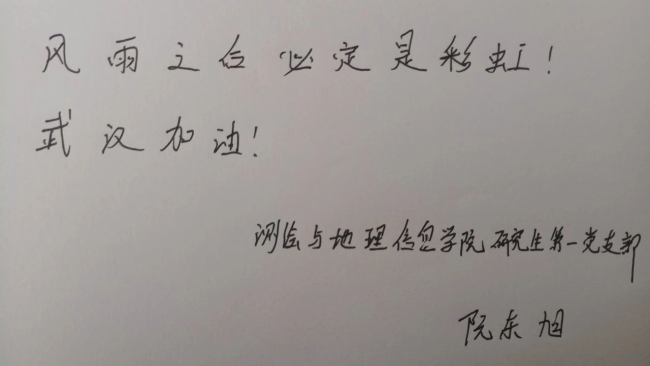 风雨之后必定是彩虹!
武汉加油!
测绘与地理信息学院研究生第一党支部
阮东旭